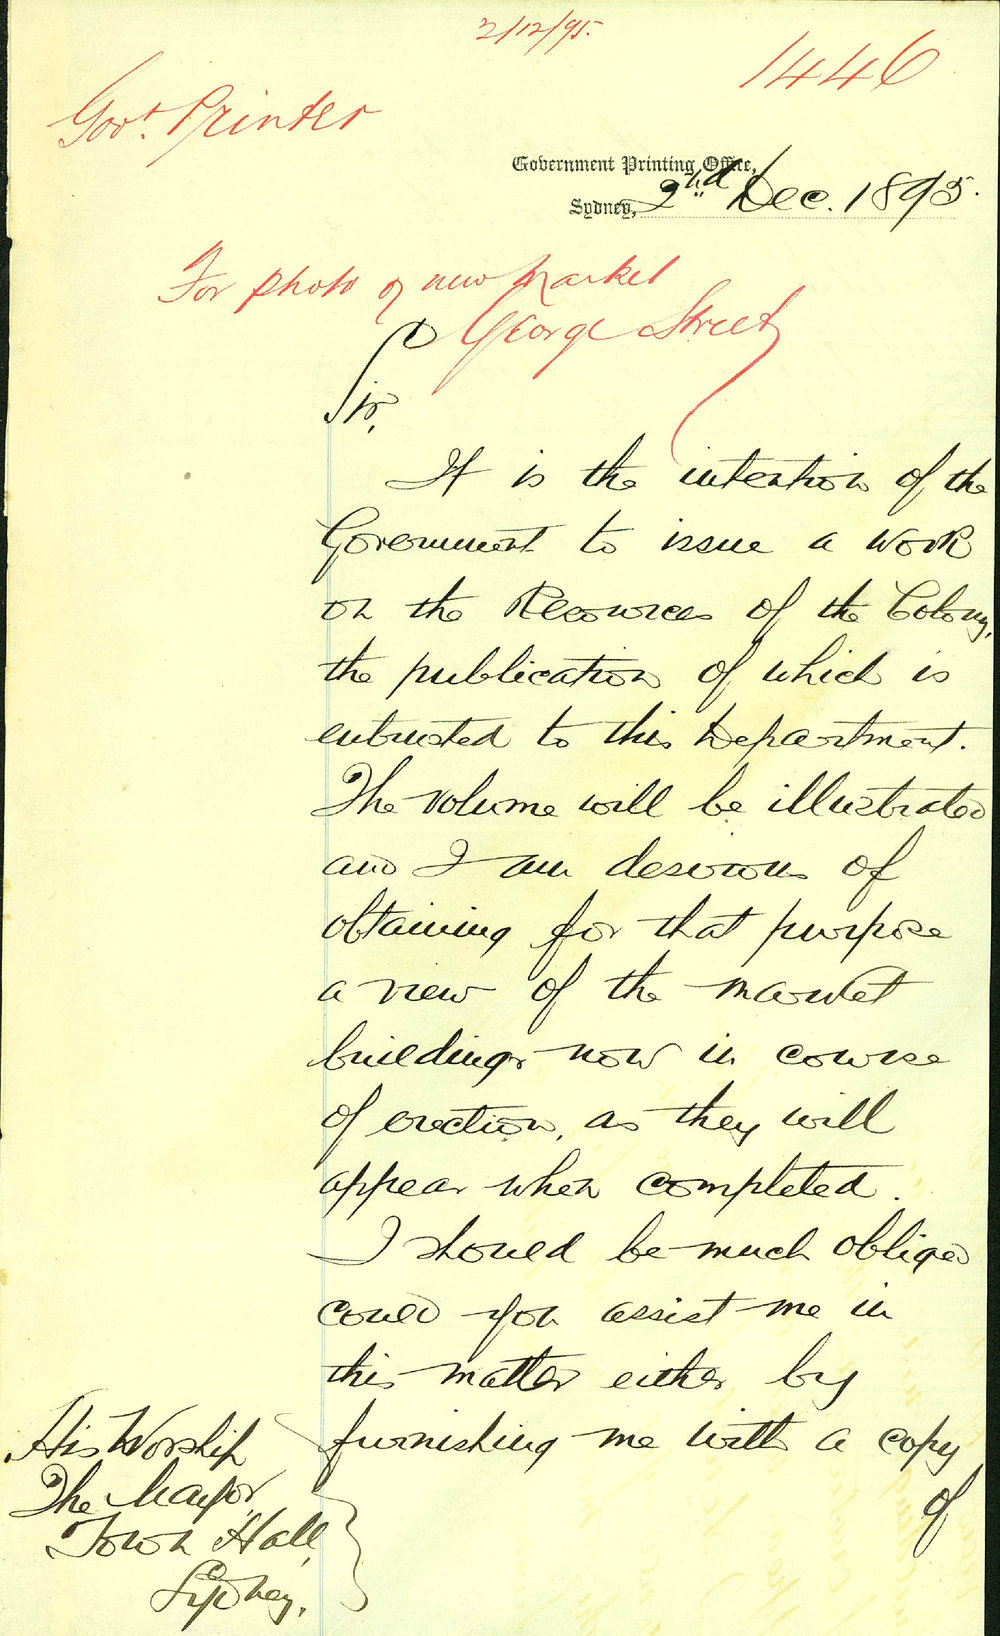 2/12/95.
1446
Govt. Printer
Government Printing Office,
Sydney, 2nd Dec. 1895.
For photo of new Market
George Street
Sir,
It is the intention of the
Government to issue a work
on the Resources of the Colony,
the publication of which is
entrusted to this Department.
The volume will be illustrated
and I am desirous of
obtaining for that purpose
a view of the market
buildings now in course
of erection, as they will
appear when completed.
I should be much obliged
could you assist me in
this matter either by
furnishing me with a copy
of
His Worship
The Mayor,
Town Hall,
Sydney.